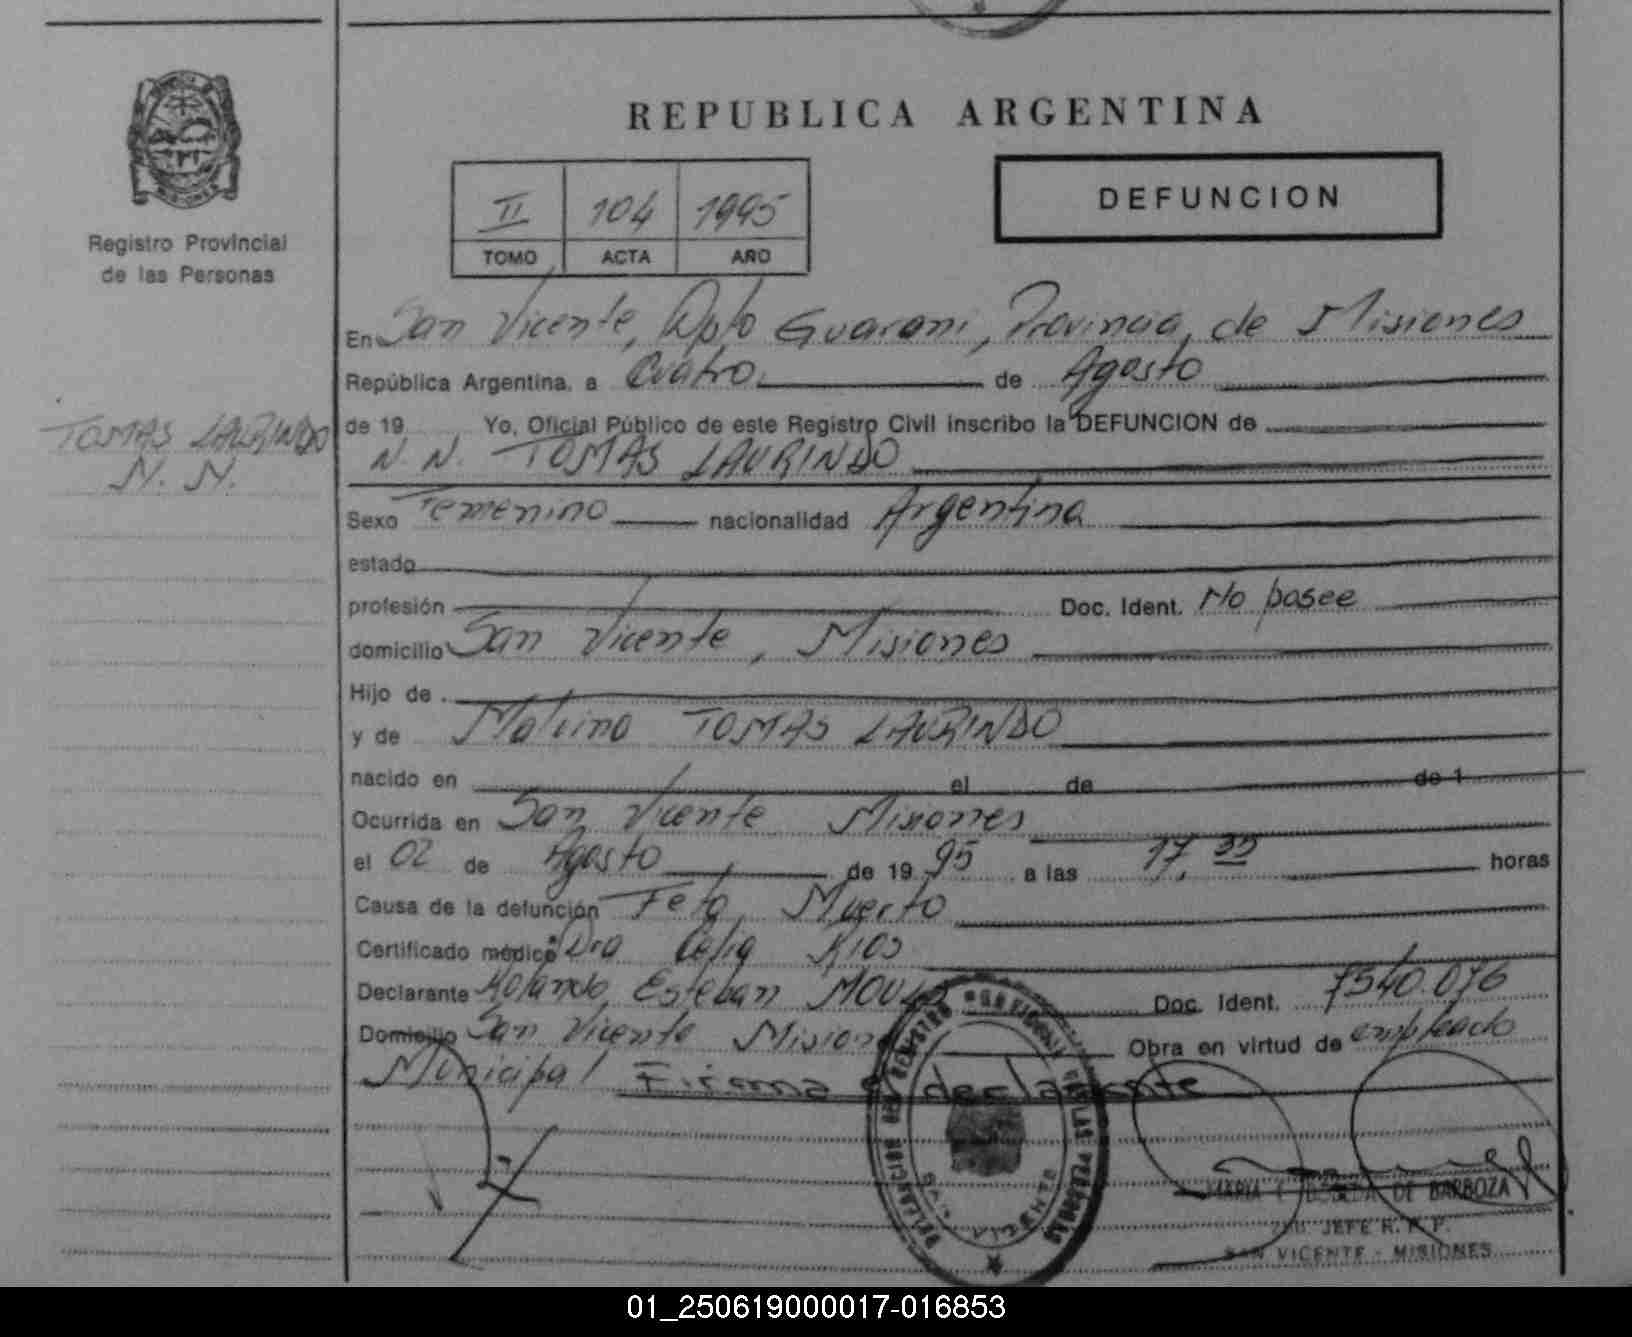 REPUBLICA ARGENTINA
II 104 1995
TOMO ACTA AÑO
DEFUNCION
MISIONES
Registro Provincial
de las Personas
TOMAS LAURINDO
N. N.
En San Vicente, Dpto Guarani, Provincia, de Misiones
República Argentina, a Cuatro de Agosto
de 19 Yo, Oficial Público de este Registro Civil inscribo la DEFUNCION de
N. N. TOMAS LAURINDO
Sexo Femenino nacionalidad Argentina
estado
profesión Doc. Ident. No posee
domicilio San Vicente, Misiones
Hijo de
y de TOMAS LAURINDO
nacido en el de de 1
Ocurrida en San Vicente Misiones
el 02 de Agosto de 19 95 a las 17, horas
Causa de la defunción Feto Muerto
Certificado médico Dra Celia Rios
Declarante Rolando Esteban Doc. Ident. 7540.076
Domicilio San Vicente Misiones Obra en virtud de empleado
Municipal Firma declarante
DELEGACION DEL REGISTRO PROVINCIAL DE LAS PERSONAS
SAN VICENTE
MARIA DE BARBOZA
JEFE R. P. P.
SAN VICENTE - MISIONES
01_250619000017-016853